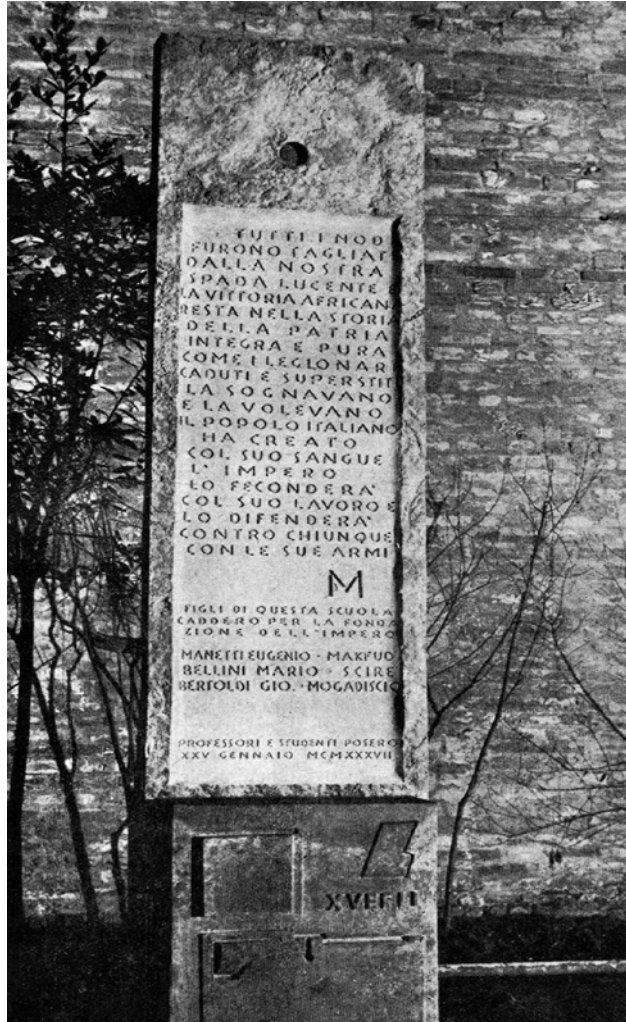 TUTTI I NOD
FURONO TAGLIAT
DALLA NOSTRA
SPADA LUCENTE E
LA VITTORIA AFRICAN
RESTA NELLA STORIA
DELLA PATRIA
INTEGRA E PURA
COME I LEGIONAR
CADUTI E SUPERSTIT
LA SOGNAVANO
E LA VOLEVANO
IL POPOLO ITALIANO
HA CREATO
COL SUO SANGUE
L'IMPERO
LO FECONDERA'
COL SUO LAVORO E
LO DIFENDERA'
CONTRO CHIUNQUE
CON LE SUE ARMI
M
FIGLI DI QUESTA SCUOLA
CADDERO PER LA FONDA
ZIONE DELL'IMPERO
MANETTI EUGENIO · MAKFUD
BELLINI MARIO · SCIRE
BERTOLDI GIO. · MOGADISCIO
PROFESSORI E STUDENTI POSERO
XXV GENNAIO MCMXXXVII
XVEFII